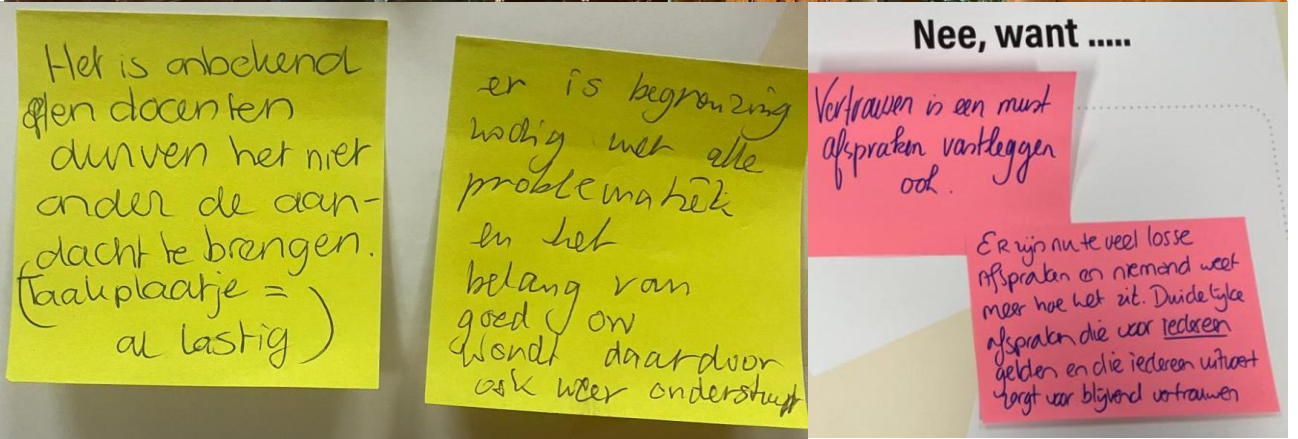 Het is onbekend
en docenten
durven het niet
onder de aan-
dacht te brengen.
(Taakplaatje =
al lastig)
er is begrenzing
nodig met alle
problematiek
en het
belang van
goed ow
wordt daardoor
ook weer ondersteunt
Nee, want .....
Vertrouwen is een must
afspraken vastleggen
ook.
ER zijn nu te veel losse
Afspraken en niemand weet
meer hoe het zit. Duidelijke
afspraken die voor iedereen
gelden en die iedereen uitvoert
zorgt voor blijvend vertrouwen